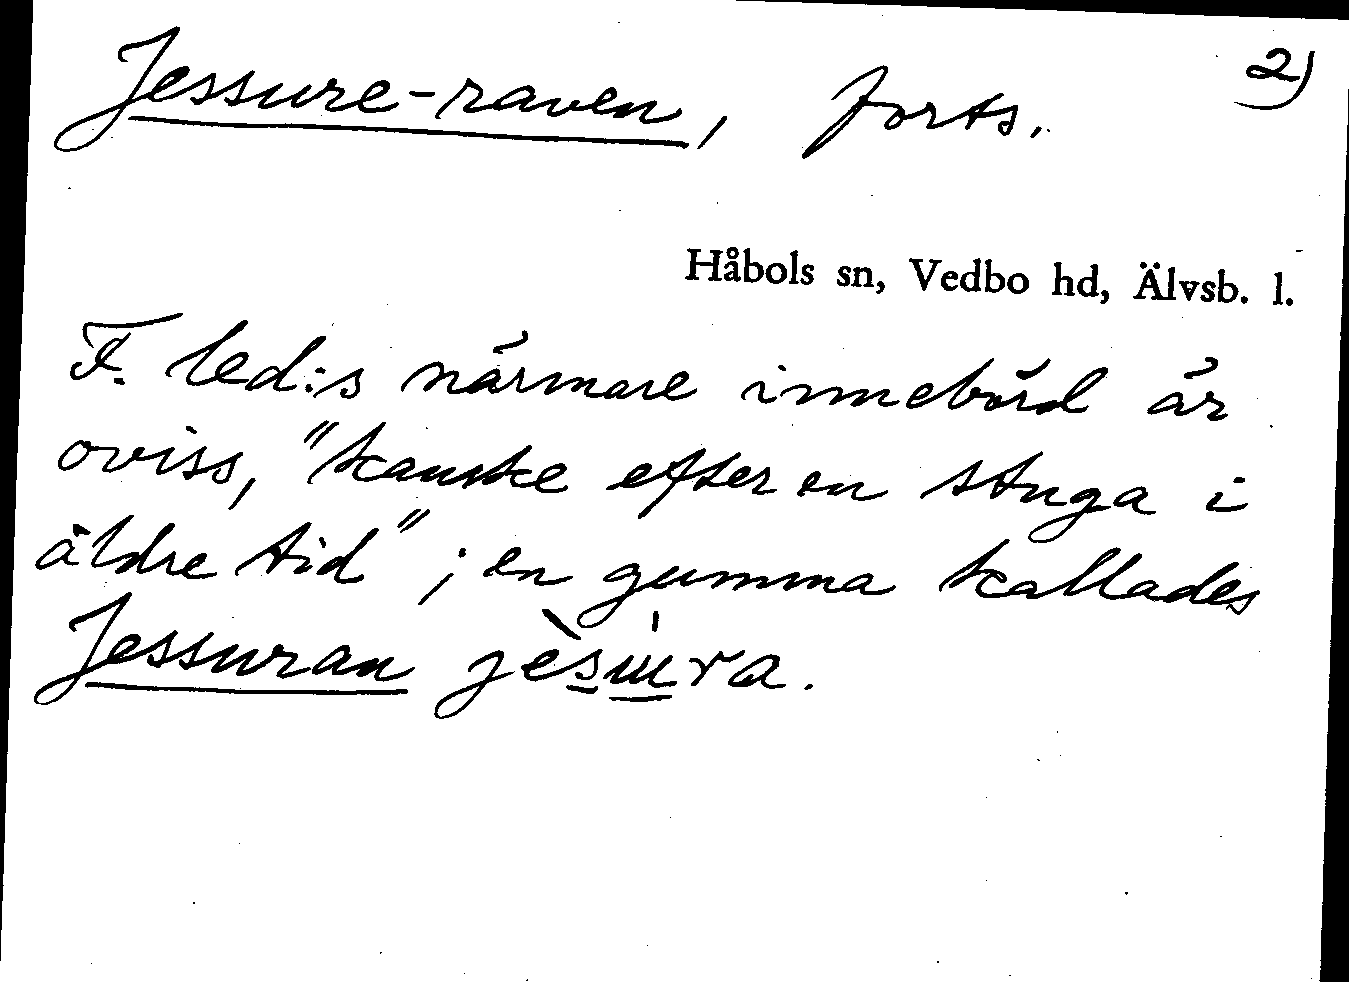 Jessure-raven, forts. 2)
Håbols sn, Vedbo hd, Älvsb. l.
F. led:s närmare innebörd är
oviss, "kanske efter en stuga i
äldre tid"; en gumma kallades
Jessuran